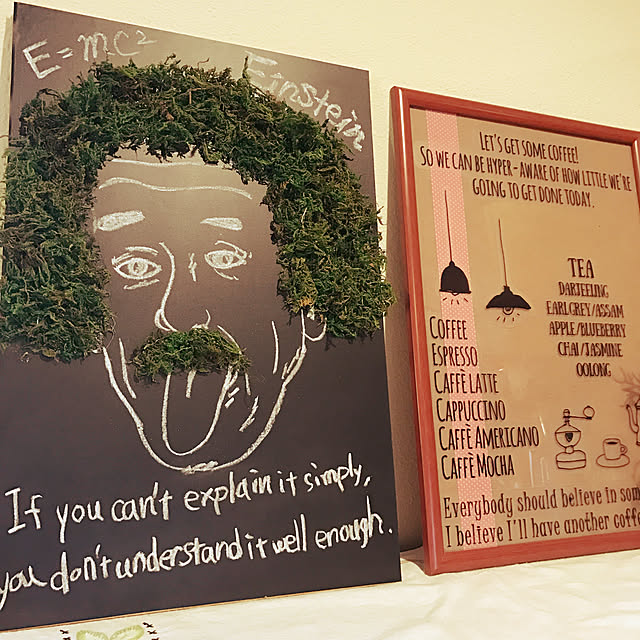 E=mc²
Einstein
If you can't explain it simply,
you don't understand it well enough.
LET'S GET SOME COFFEE!
SO WE CAN BE HYPER-AWARE OF HOW LITTLE WE'RE
GOING TO GET DONE TODAY.
TEA
DARJEELING
EARLGREY/ASSAM
APPLE/BLUEBERRY
CHAI/JASMINE
OOLONG
COFFEE
ESPRESSO
CAFFÈ LATTE
CAPPUCCINO
CAFFÈ AMERICANO
CAFFÈ MOCHA
Everybody should believe in som
I believe I'll have another coffe